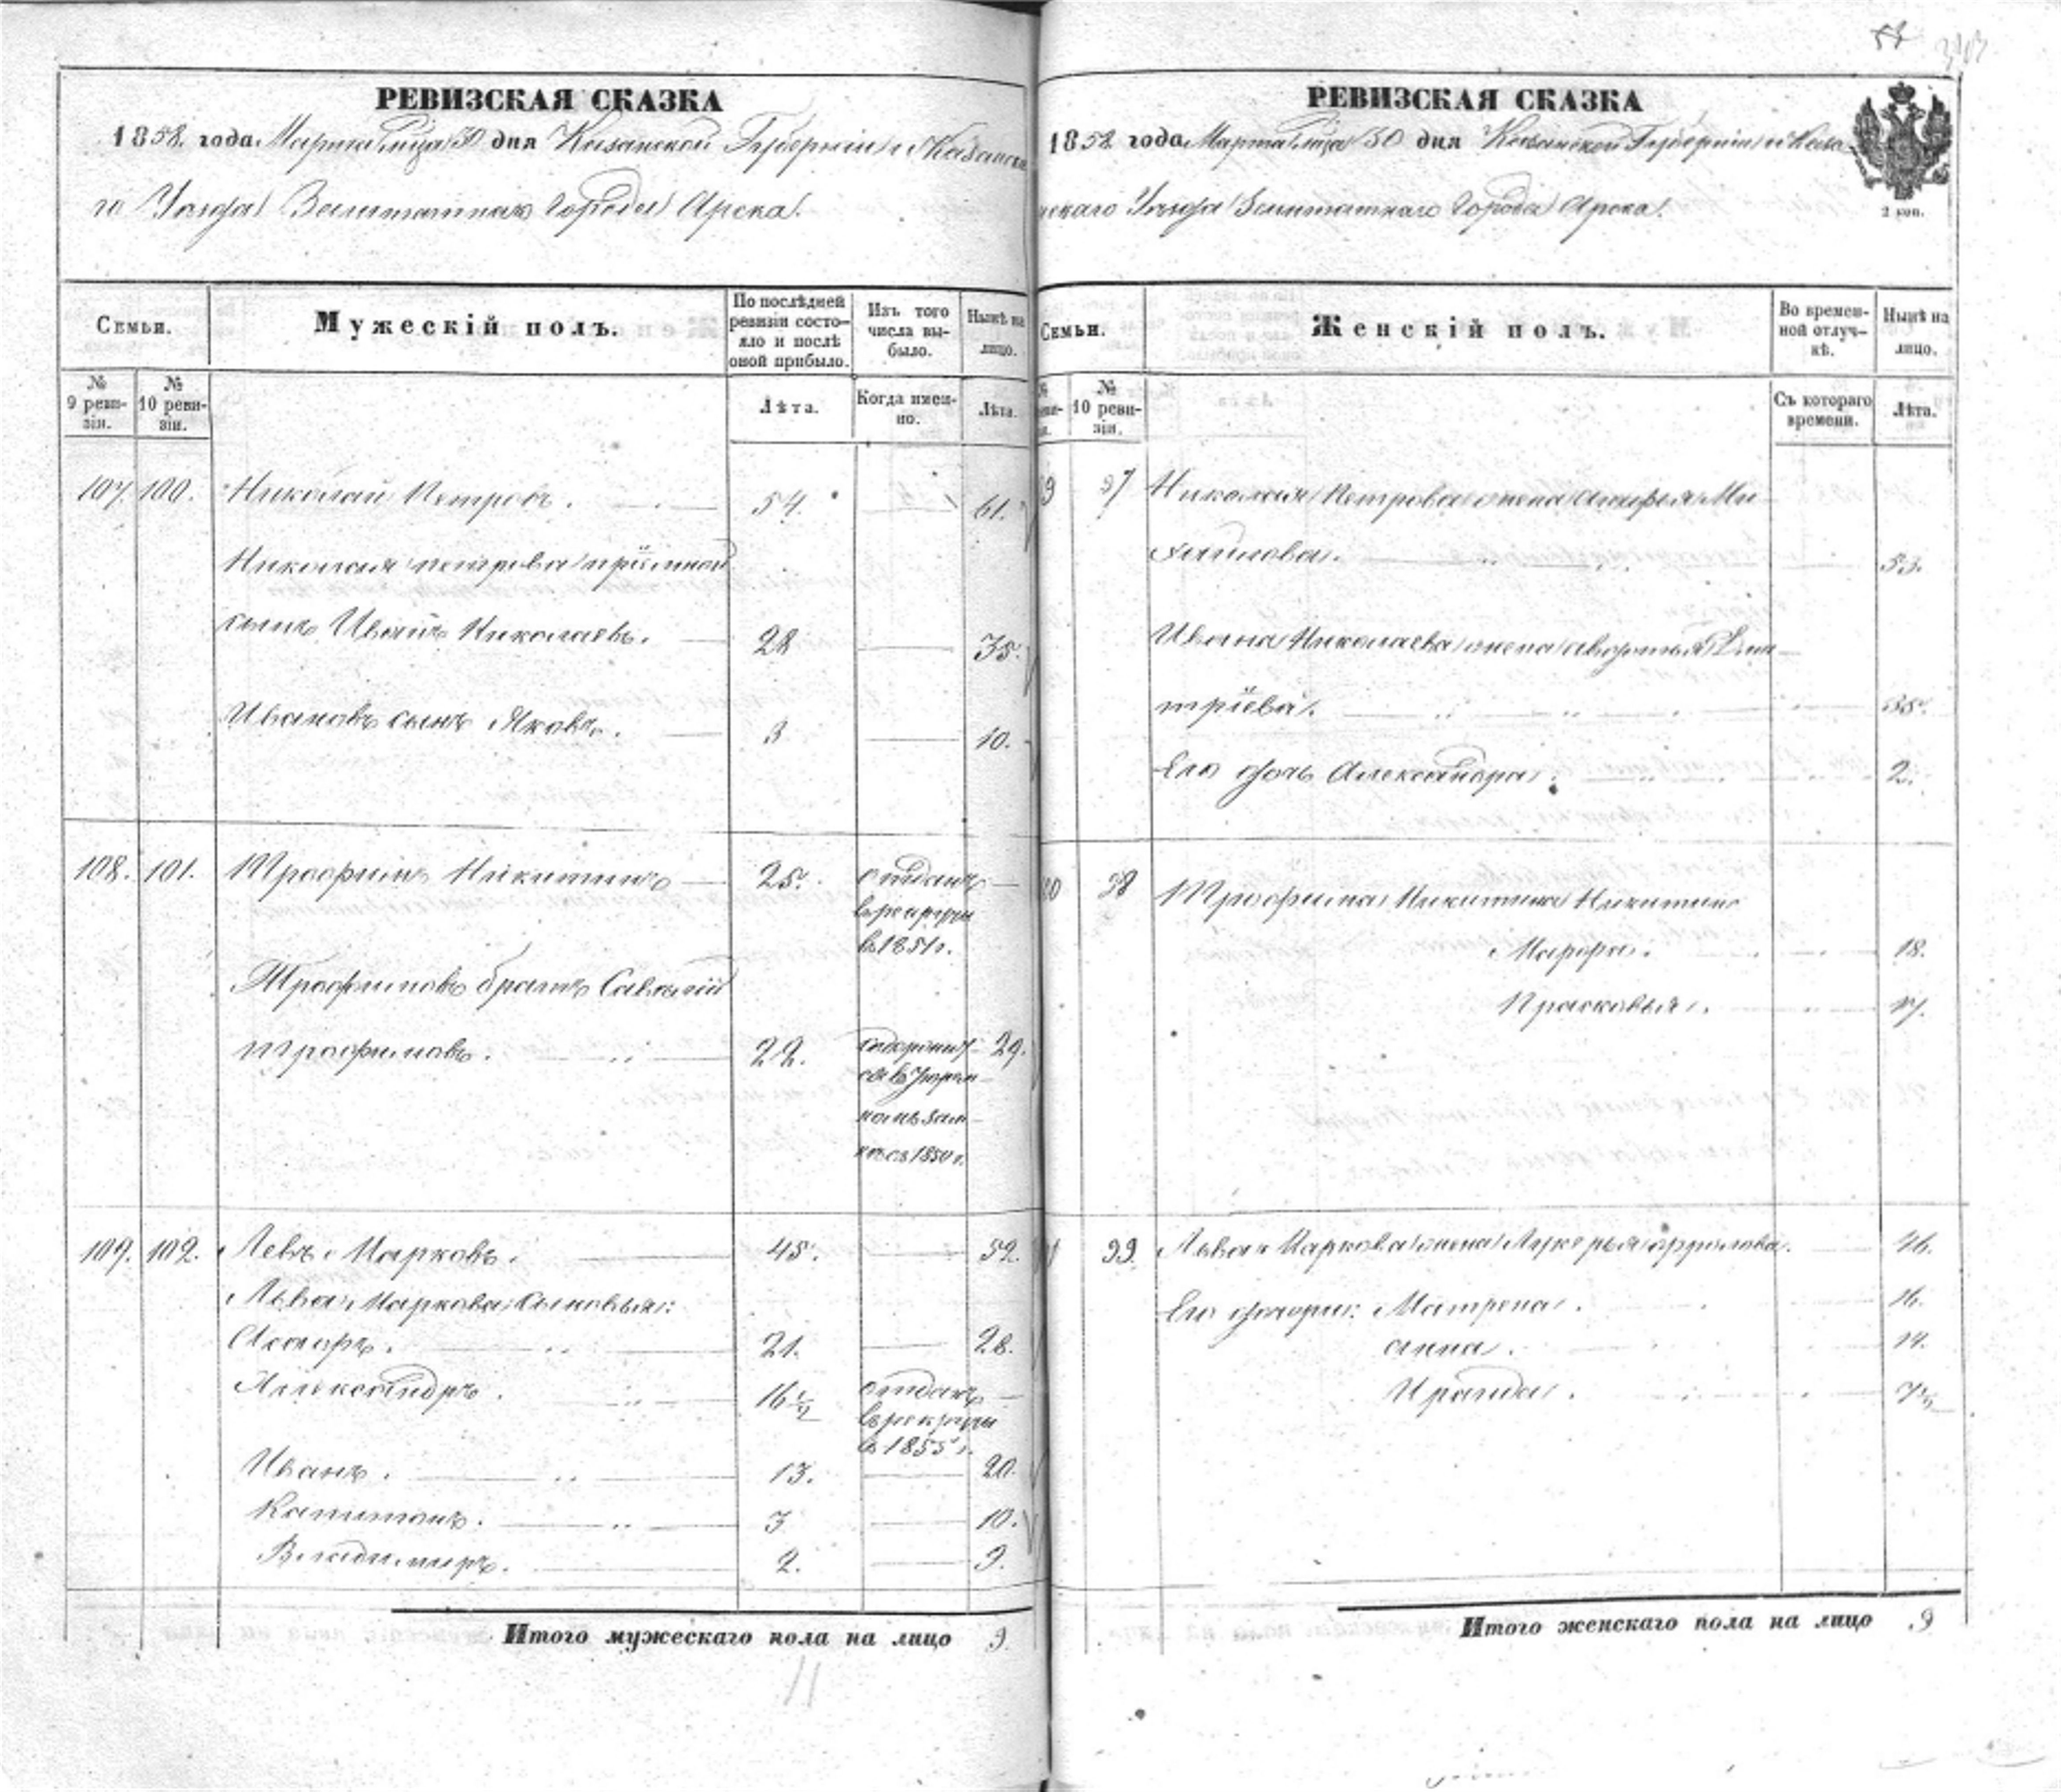 РЕВИЗСКАЯ СКАЗКА
1858. года Марта м-ца 30 дня Казанской Губерніи и Казанска
го Уезда Заштатнаго Города Арска.
Семьи.
Мужескій полъ.
По послѣдней ревизіи состояло и послѣ оной прибыло.
Изъ того числа выбыло.
Нынѣ на лицо.
№ 9 ревизіи.
№ 10 ревизіи.
Лѣта.
Когда именно.
Лѣта.
107. 100. Николай Петровъ. 54. 61.
Николая Петрова пріемной
сынъ Иванъ Николаевъ. 28 35.
Ивановъ сынъ Яковъ. 3 10.
108. 101. Трофимъ Никитинъ 25. отданъ
въ рекруты
в 1851 г.
Трофимовъ братъ Савватій
Трофимовъ. 22. 29.
в 1850 г.
109. 102. Левъ Марковъ. 45. 52.
Льва Маркова сыновья:
21. 28.
Александръ. 16½ отданъ
въ рекруты
в 1855 г.
Иванъ. 13. 20.
Капитонъ. 3 10.
Владимиръ. 2. 9.
Итого мужескаго пола на лицо 9.
11
РЕВИЗСКАЯ СКАЗКА
1858 года Марта м-ца 30 дня Казанской Губерніи и Каза
нскаго Уезда Заштатнаго Города Арска.
2 коп.
Семьи.
Женскій полъ.
Во временной отлучкѣ.
Нынѣ на лицо.
10 ревизіи.
Съ котораго времени.
Лѣта.
97 Николая Петрова жена Ми
хайлова. 53.
Ивана Николаева жена Авдотья Дми
тріева. 35.
Его дочь Александра. 2.
98 Трофима Никитина
Марфа. 18.
Прасковья. 17.
99. Льва Маркова жена Лукерья Фролова. 46.
Его дочери: Матрена. 16.
Анна. 14.
Ираида. 7½
Итого женскаго пола на лицо 9